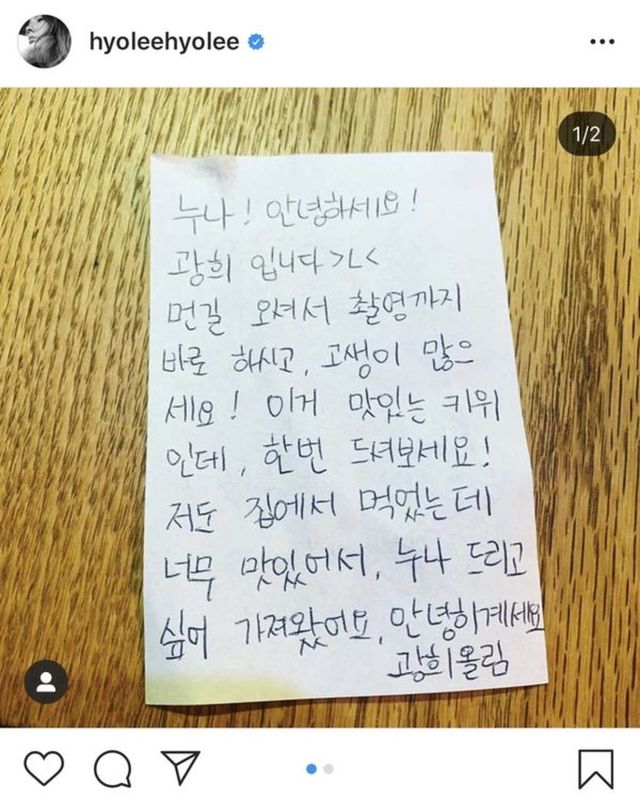 hyoleehyolee
1/2
누나! 안녕하세요!
광희 입니다>ㄴ<
먼길 오셔서 촬영까지
바로 하시고, 고생이 많으
세요! 이거 맛있는 키위
인데, 한번 드셔보세요!
저도 집에서 먹었는데
너무 맛있어서, 누나 드리고
싶어 가져왔어요, 안녕히계세요
광희올림